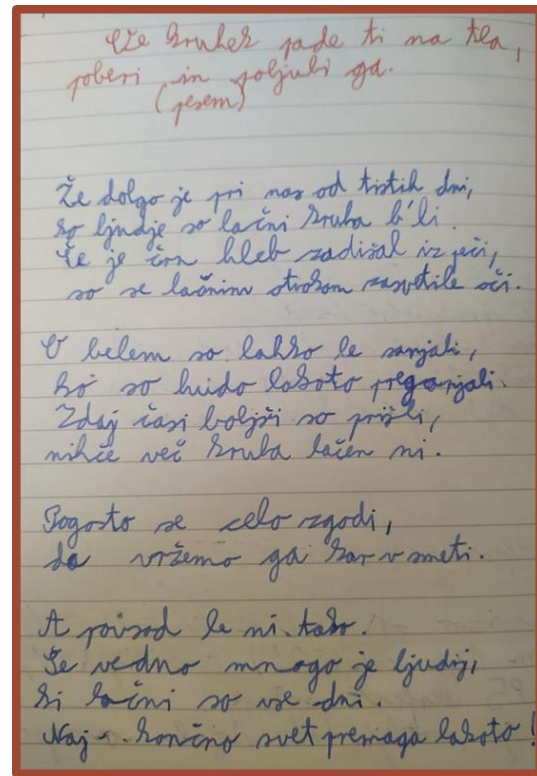 Če kruhek pade ti na tla,
poberi in poljubi ga.
(pesem)
Že dolgo je pri nas od tistih dni,
ko ljudje so lačni kruha b'li.
Če je črn hleb zadišal iz peči,
so se lačnim otrokom zasvetile oči.
O belem so lahko le sanjali,
ko so hudo lakoto preganjali.
Zdaj časi boljši so prišli,
nihče več kruha lačen ni.
Pogosto se celo zgodi,
da vržemo ga kar v smeti.
A povsod le ni tako.
Še vedno mnogo je ljudij,
ki lačni so vse dni.
Naj končno svet premaga lakoto!